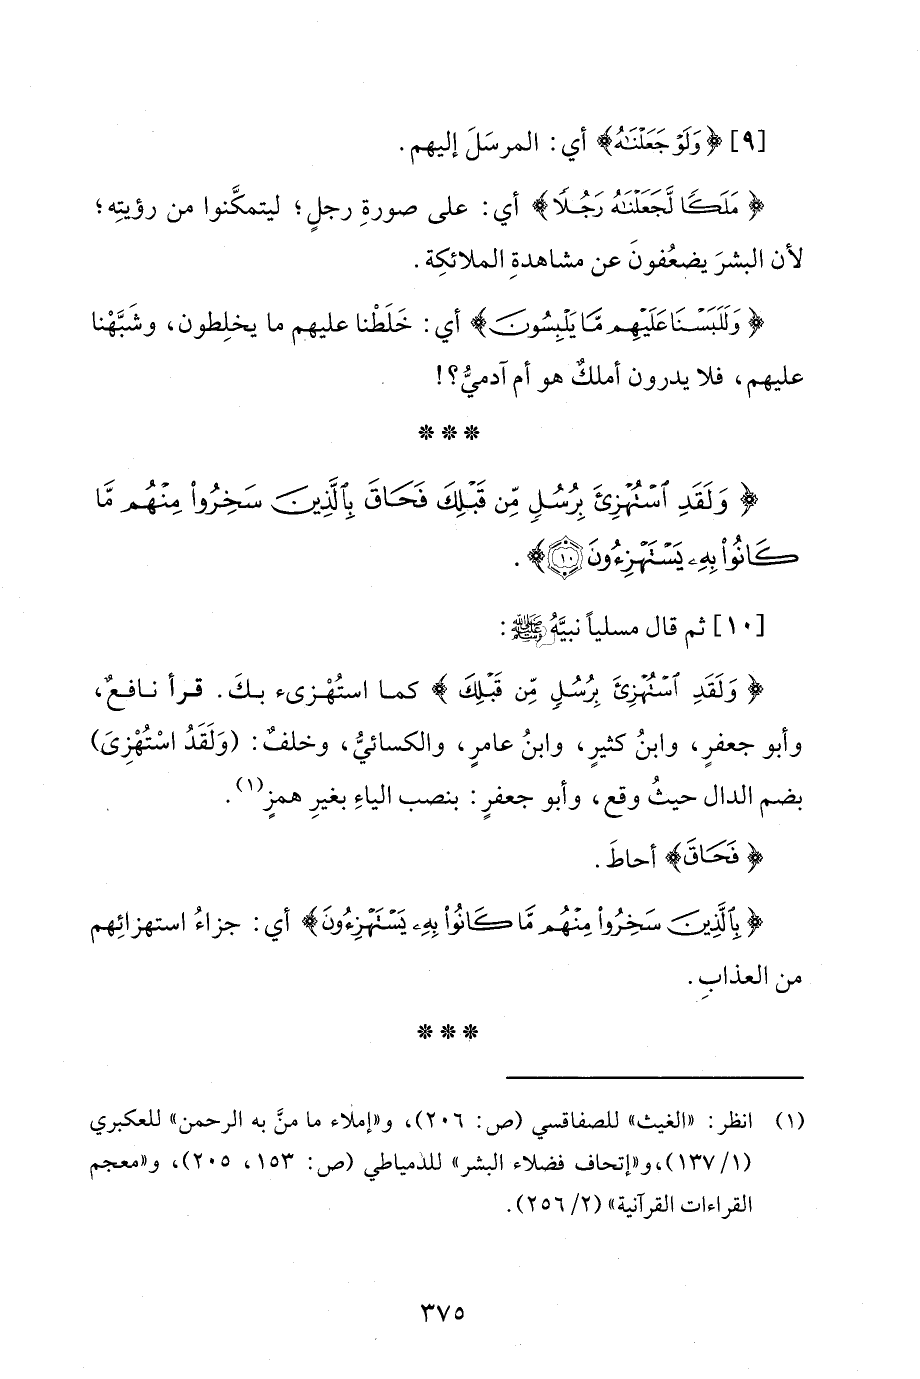 [٩] ﴿وَلَوْ جَعَلْنَٰهُ﴾ أي: المرسَلَ إليهم.
﴿مَلَكًا لَّجَعَلْنَٰهُ رَجُلًا﴾ أي: على صورةِ رجلٍ؛ ليتمكَّنوا من رؤيتِه؛
لأن البشرَ يضعُفونَ عن مشاهدةِ الملائكِة.
﴿وَلَلَبَسْنَا عَلَيْهِم مَّا يَلْبِسُونَ﴾ أي: خَلَطْنا عليهم ما يخلِطون، وشَبَّهْنا
عليهم، فلا يدرون أملكٌ هو أم آدميٌّ؟!
* * *
﴿وَلَقَدِ ٱسْتُهْزِئَ بِرُسُلٍ مِّن قَبْلِكَ فَحَاقَ بِٱلَّذِينَ سَخِرُوا۟ مِنْهُم مَّا
كَانُوا۟ بِهِۦ يَسْتَهْزِءُونَ ١٠﴾.
[١٠] ثم قال مسلياً نبيَّهُ ﷺ:
﴿وَلَقَدِ ٱسْتُهْزِئَ بِرُسُلٍ مِّن قَبْلِكَ﴾ كما استُهْزىء بكَ. قرأ نافعٌ،
وأبو جعفرٍ، وابنُ كثيرٍ، وابنُ عامرٍ، والكسائيُّ، وخلفٌ: (وَلَقَدُ اسْتُهْزِىَ)
بضم الدال حيثُ وقع، وأبو جعفرٍ: بنصب الياءِ بغيرِ همزٍ(١).
﴿فَحَاقَ﴾ أحاطَ.
﴿بِٱلَّذِينَ سَخِرُوا۟ مِنْهُم مَّا كَانُوا۟ بِهِۦ يَسْتَهْزِءُونَ﴾ أي: جزاءُ استهزائِهم
من العذابِ.
* * *
(١) انظر: «الغيث» للصفاقسي (ص: ٢٠٦)، و«إملاء ما منَّ به الرحمن» للعكبري
(١/ ١٣٧)، و«إتحاف فضلاء البشر» للدمياطي (ص: ١٥٣، ٢٠٥)، و«معجم
القراءات القرآنية» (٢/ ٢٥٦).
٣٧٥